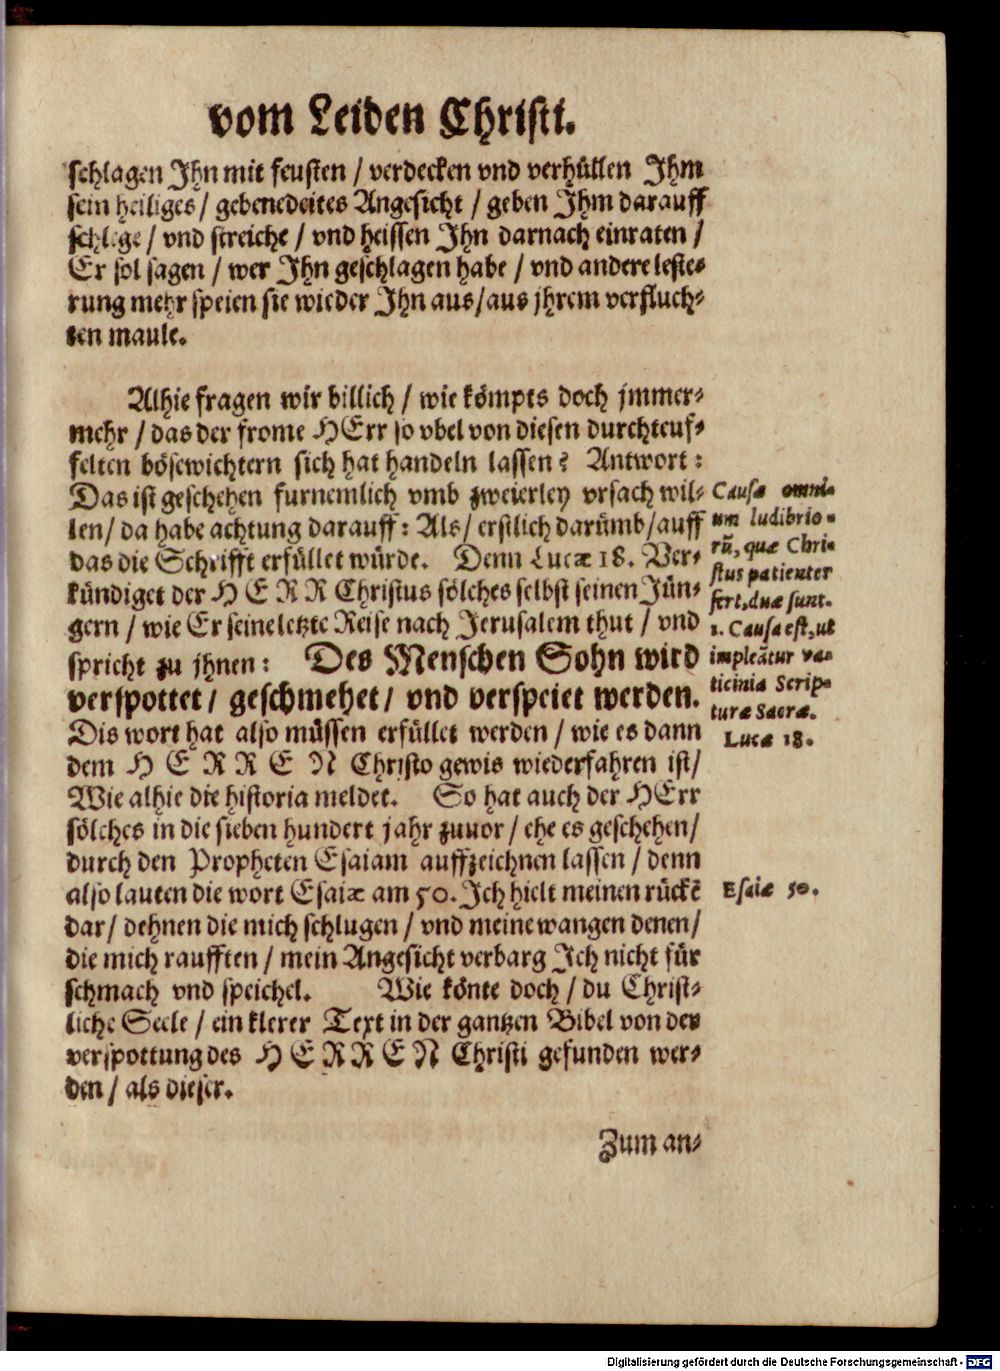 vom Leiden Christi.
schlagen Ihn mit feusten / verdecken vnd verhüllen Ihm
sein heiliges / gebenedeites Angesicht / geben Ihm darauff
schlege / vnd streiche / vnd heissen Ihn darnach einraten /
Er sol sagen / wer Ihn geschlagen habe / vnd andere leste-
rung mehr speien sie wieder Ihn aus / aus jhrem verfluch-
ten maule.
Alhie fragen wir billich / wie kömpts doch jmmer-
mehr / das der frome HErr so vbel von diesen durchteuf-
felten bösewichtern sich hat handeln lassen? Antwort:
Das ist geschehen furnemlich vmb zweierley vrsach wil-
len / da habe achtung darauff: Als / erstlich darümb / auff
das die Schrifft erfüllet würde. Denn Lucæ 18. Ver-
kündiget der HERR Christus sölches selbst seinen Jün-
gern / wie Er seine letzte Reise nach Jerusalem thut / vnd
spricht zu jhnen: Des Menschen Sohn wird
verspottet / geschmehet / vnd verspeiet werden.
Dis wort hat also müssen erfüllet werden / wie es dann
dem HERREN Christo gewis wiederfahren ist /
Wie alhie die historia meldet. So hat auch der HErr
sölches in die sieben hundert jahr zuuor / ehe es geschehen /
durch den Propheten Esaiam auffzeichnen lassen / denn
also lauten die wort Esaiæ am 50. Ich hielt meinen rückē
dar / dehnen die mich schlugen / vnd meine wangen denen /
die mich raufften / mein Angesicht verbarg Ich nicht für
schmach vnd speichel. Wie könte doch / du Christ-
liche Seele / ein klerer Text in der gantzen Bibel von der
verspottung des HERREN Christi gefunden wer-
den / als dieser.
Zum an-
Causæ omni-
um ludibrio-
rũ, quæ Chri-
stus patienter
fert, duæ sunt.
1. Causa est, ut
impleãtur va-
ticinia Scrip-
turæ Sacræ.
Lucæ 18.
Esaiæ 50.
Digitalisierung gefördert durch die Deutsche Forschungsgemeinschaft - DFG